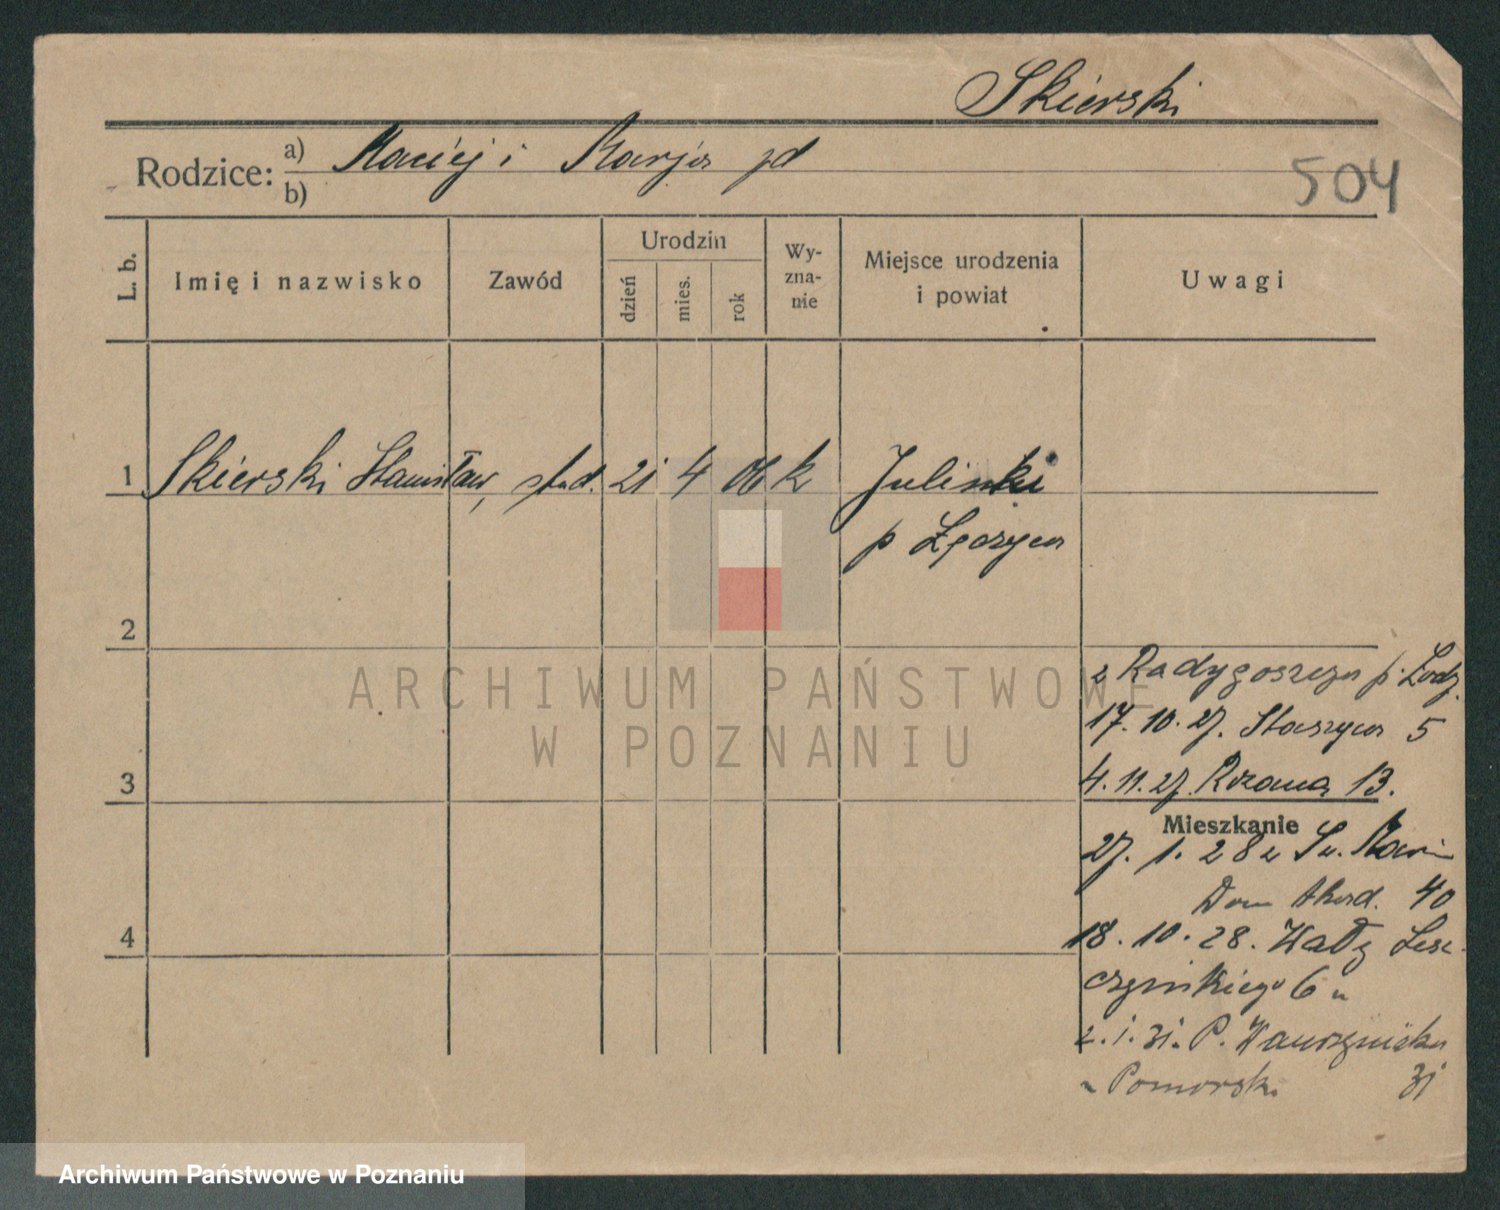 Skierski
Rodzice: a) Maciej i Marja
b)
504
L. b.
Imię i nazwisko
Zawód
Urodzin
dzień
mies.
rok
Wy-
zna-
nie
Miejsce urodzenia
i powiat
Uwagi
1 Skierski Stanisław, stud. 21 4 06 k Julinki
p Łęczyca
2
z Radygoszcza p. Łodz
17. 10. 27. Staszyca 5
3
4. 11. 27. Różana 13.
Mieszkanie
27. 1. 28 z Św. Marcin
Dom Akad. 40
4
18. 10. 28. Wały Lesz-
czyńskiego 6
2. 1. 31. P. Wawrzyniaka
Pomorski 31
ARCHIWUM PAŃSTWOWE
W POZNANIU
Archiwum Państwowe w Poznaniu